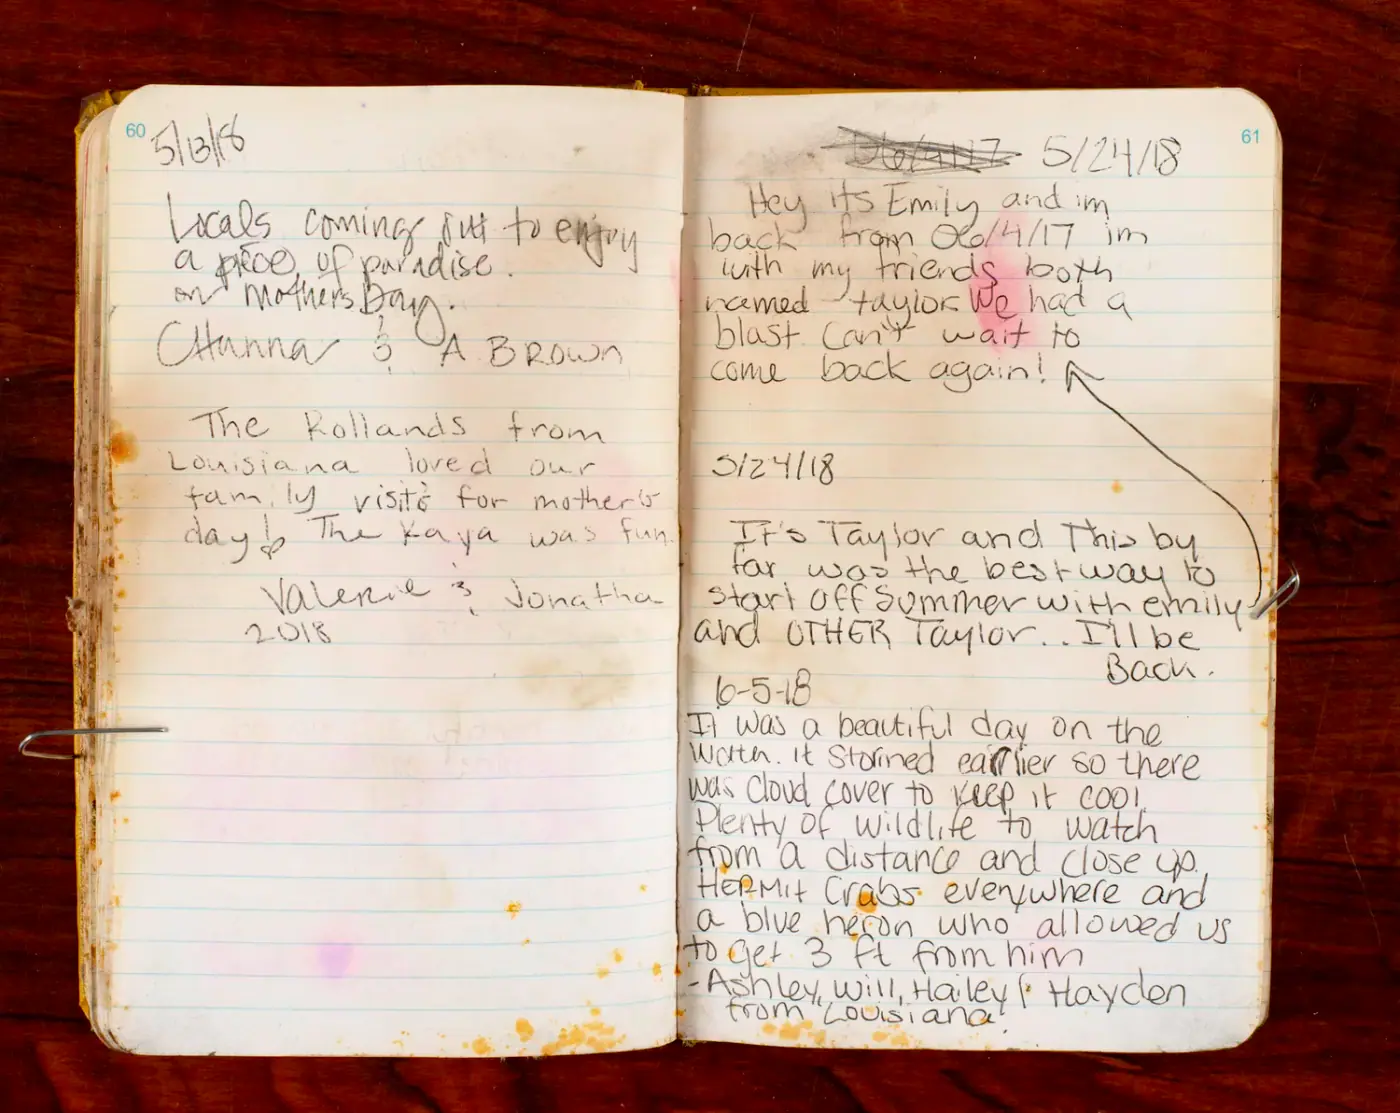 60
5/13/18
Locals coming out to enjoy
a piece of paradise.
on Mothers Day.
& A BROWN
The Rollands from
Louisiana loved our
family visit for mother's
day! The Kaya was fun.
Valerie & Jonatha
2018
61
06/4/17 5/24/18
Hey its Emily and im
back from 06/4/17 im
with my friends both
named taylor We had a
blast Can't wait to
come back again!
5/24/18
It's Taylor and This by
far was the best way to
start off summer with emily
and OTHER Taylor... I'll be
Back.
6-5-18
It was a beautiful day on the
water. it stormed earlier so there
was cloud cover to keep it cool.
Plenty of wildlife to watch
from a distance and close up.
HERMit Crabs everywhere and
a blue heron who allowed us
to get 3 ft from him
-Ashley, Will, Hailey & Hayden
from Louisiana!